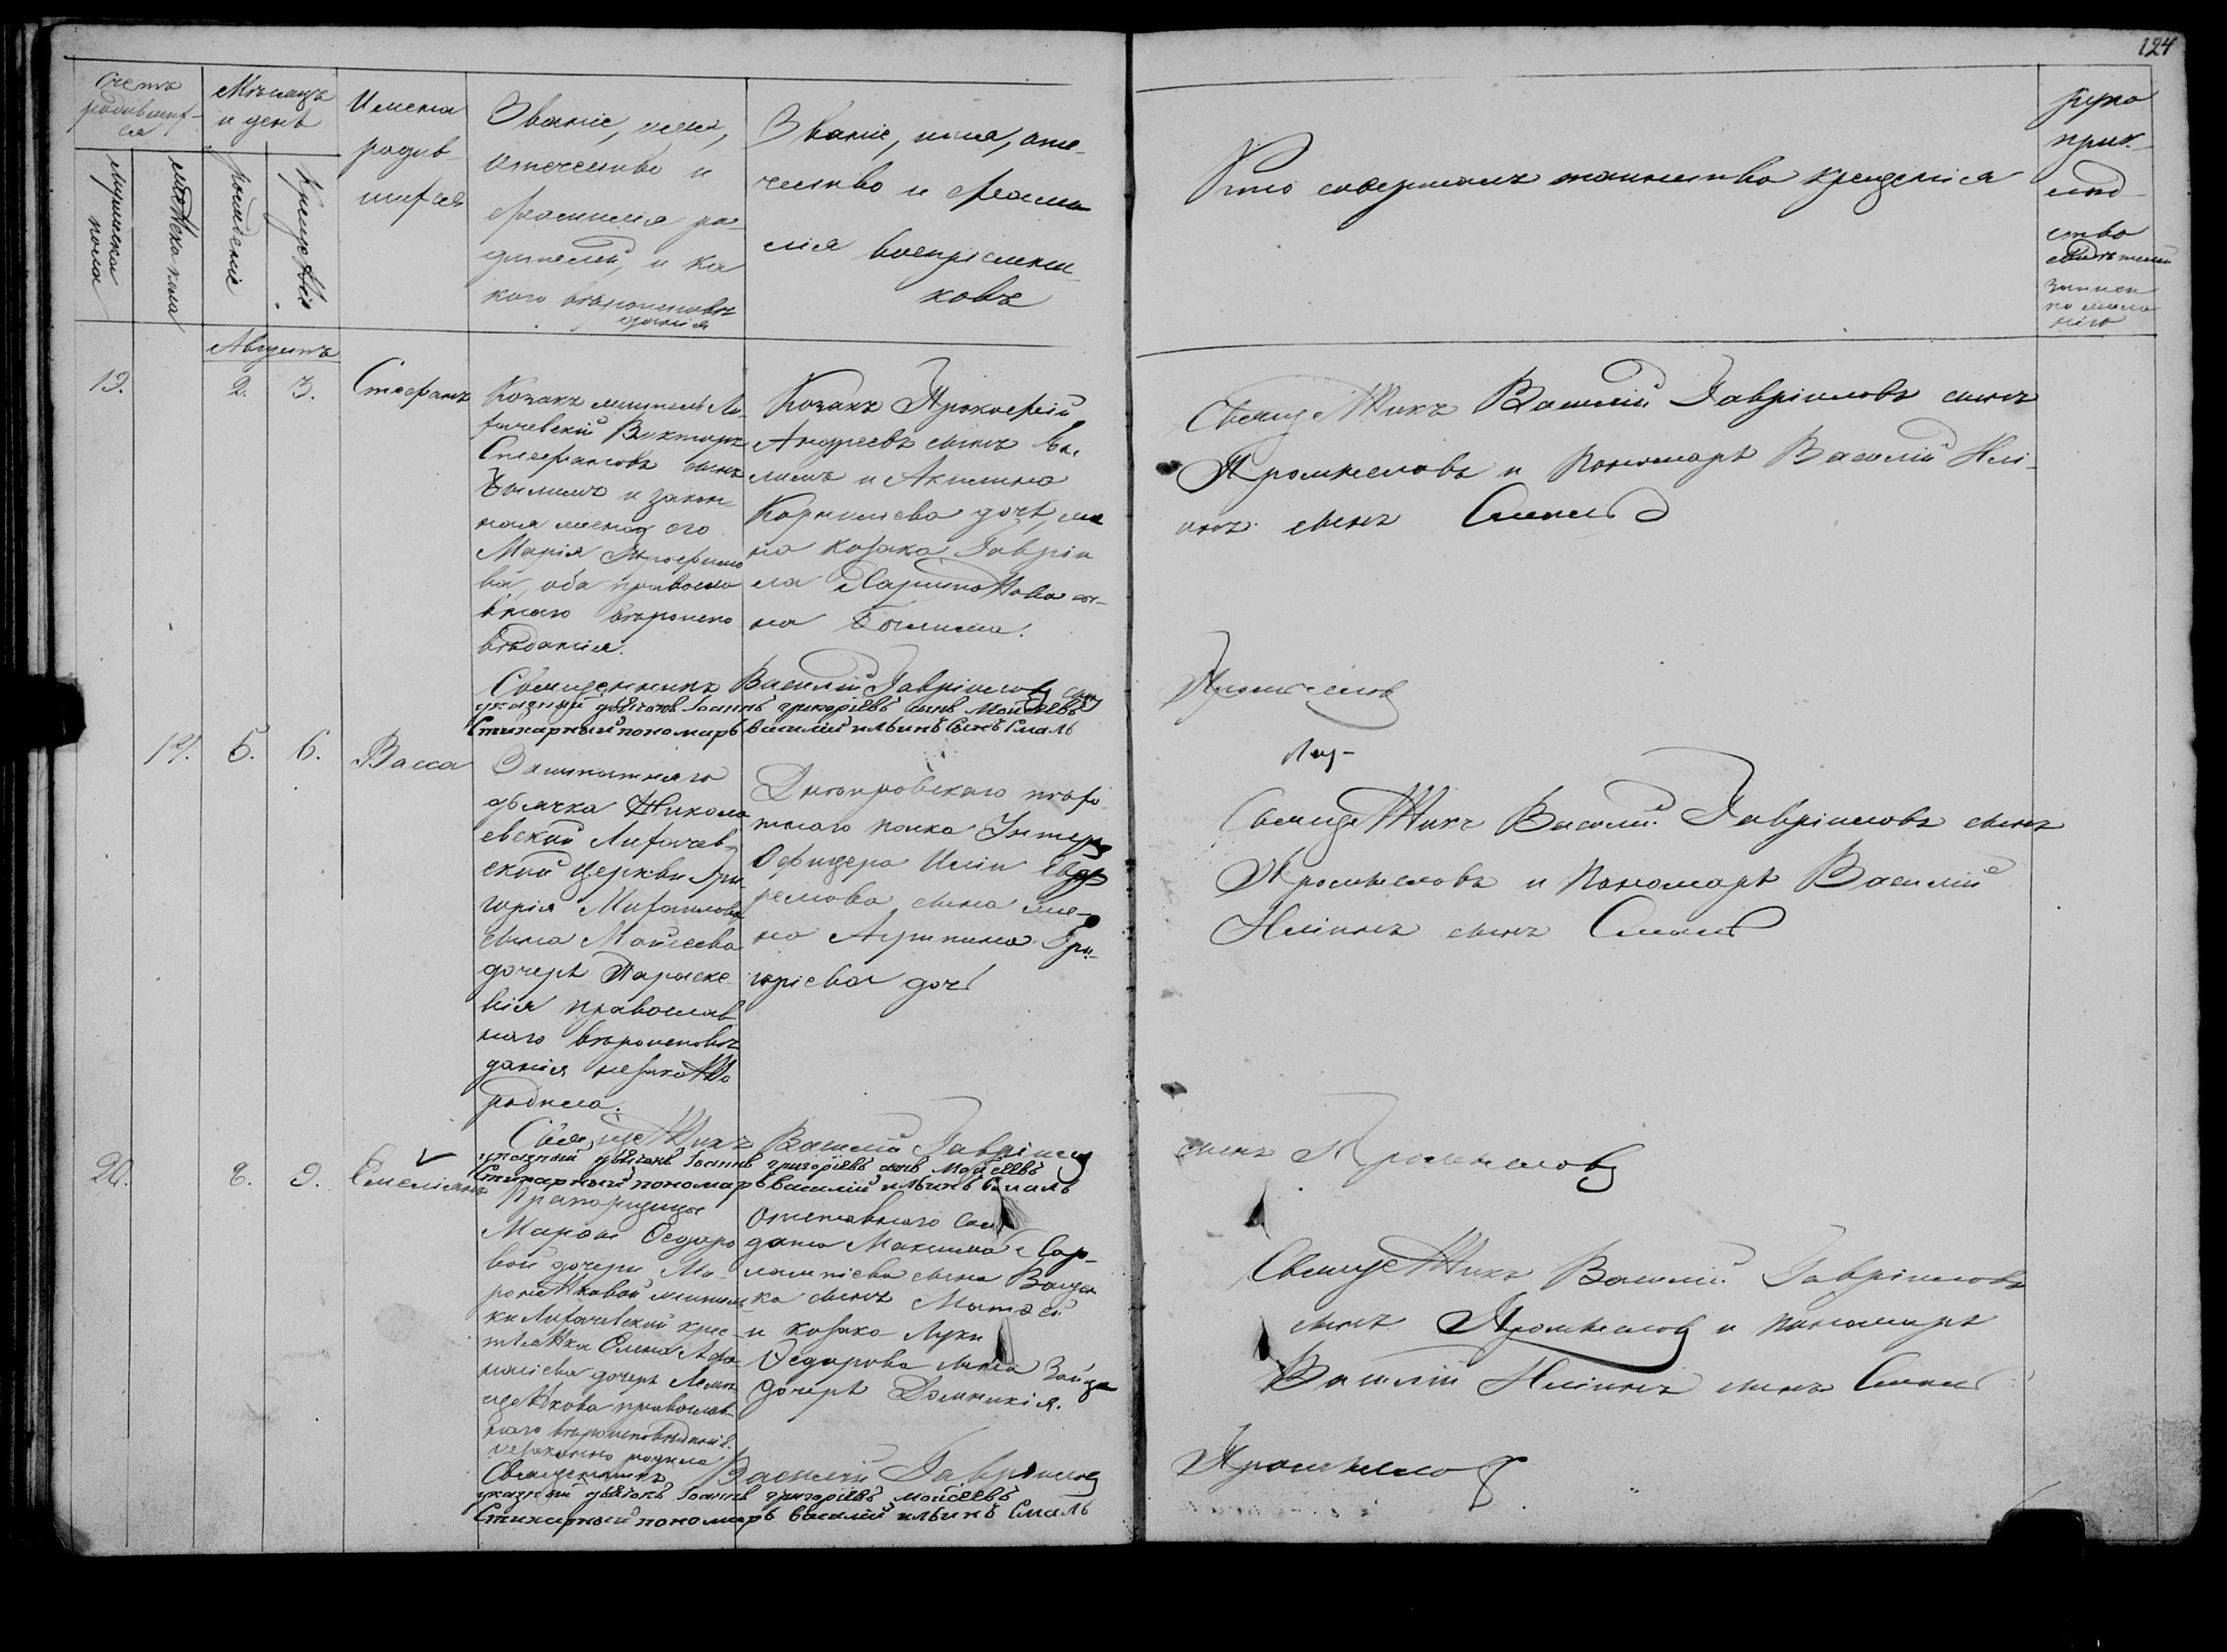 124
Счетъ
родивших-
ся
Мѣсяцъ
и день
Имена
родив-
шихся
Званіе, имя,
отечество и
фамилія ро-
дителей, и ка
кого вѣроисповѣ
данія
Званіе, имя, оте-
чество и фами
лія воспріемни-
ковъ
Кто совершалъ таинство крещенія
руко
прик-
лад
ство
свидѣтелей
записи
по жела
нію
мужеска
пола
женска пола
рожденіе
крещеніе
Августъ
19.
2.
3.
Стефанъ
Козакъ житель Ли-
хачевскій Викторъ
Стефановъ сынъ
и закон
ная жена его
Марія Трофимо
ва, оба православ
наго вѣроиспо
вѣданія.
Козакъ Прокофій
Андреевъ сынъ
и Акилина
Корнилева дочь, же
на козака Гаврiи
ла Харитонова сы-
на
Священникъ Василій Гавріиловъ сынъ
Промжеловъ и Пономарь Василій Илі-
инъ сынъ Смаль
Священникъ Василій Гавріиловъ сынъ
указный дьячокъ Іоаннъ григоріевъ сынъ Мойсеевъ
Стихарный пономарь василій ильинъ Сынъ Смаль
12.
5.
6.
Васса
Заштатнаго
дьячка Никола
евской Лихачев-
ской церкви Гри
горія Михайлова
сына Мойсеева
дочерь Параске
вія православ
наго вѣроисповѣ
данія незаконно
родила.
Днѣпровскаго пѣхо
тнаго полка Унтеръ
Офицера Иліи
сына же-
на Агрипина Гри-
горіева дочь
Священникъ Василій Гавріиловъ сынъ
Промжеловъ и Пономарь Василій
Иліинъ сынъ Смаль
Священникъ Василій Гавріиловъ
сынъ Промжеловъ
указный дьячокъ Іоаннъ григоріевъ сынъ Мойсеевъ
Стихарный пономарь василій ильинъ Смаль
20.
8.
9.
Емеліянъ
Прапорщицы
Марфы Федоро
вой дочери Ми-
роненковой житель
ки Лихачевской крес-
тьянка Елена Афа-
насіева дочерь
православ-
наго вѣроисповѣданія
незаконно родила
Отставнаго сол
дата Максима Хар-
лампіева сына
ка сынъ Матвѣй
и козака Луки
Федорова сына Зайца
дочерь Домникія.
Священникъ Василій Гавріиловъ
сынъ Промжеловъ и пономарь
Василій Иліинъ сынъ Смаль
Священникъ Василій Гавріиловъ
Промжеловъ
указный дьячокъ Іоаннъ григоріевъ мойсеевъ
Стихарный пономарь василий ильинъ Смаль